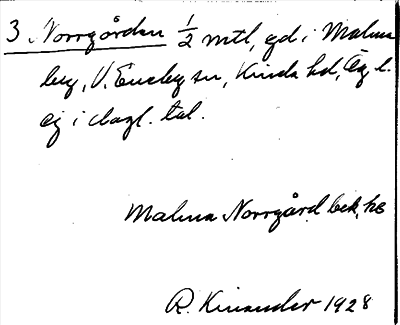 3 Norrgården 1/2 mtl, gd i Malma
by, V. Eneby sn, Kinda hd, Ög l.
ej i dagl. tal.
Malma Norrgård bek, hs
R. Kinander 1928